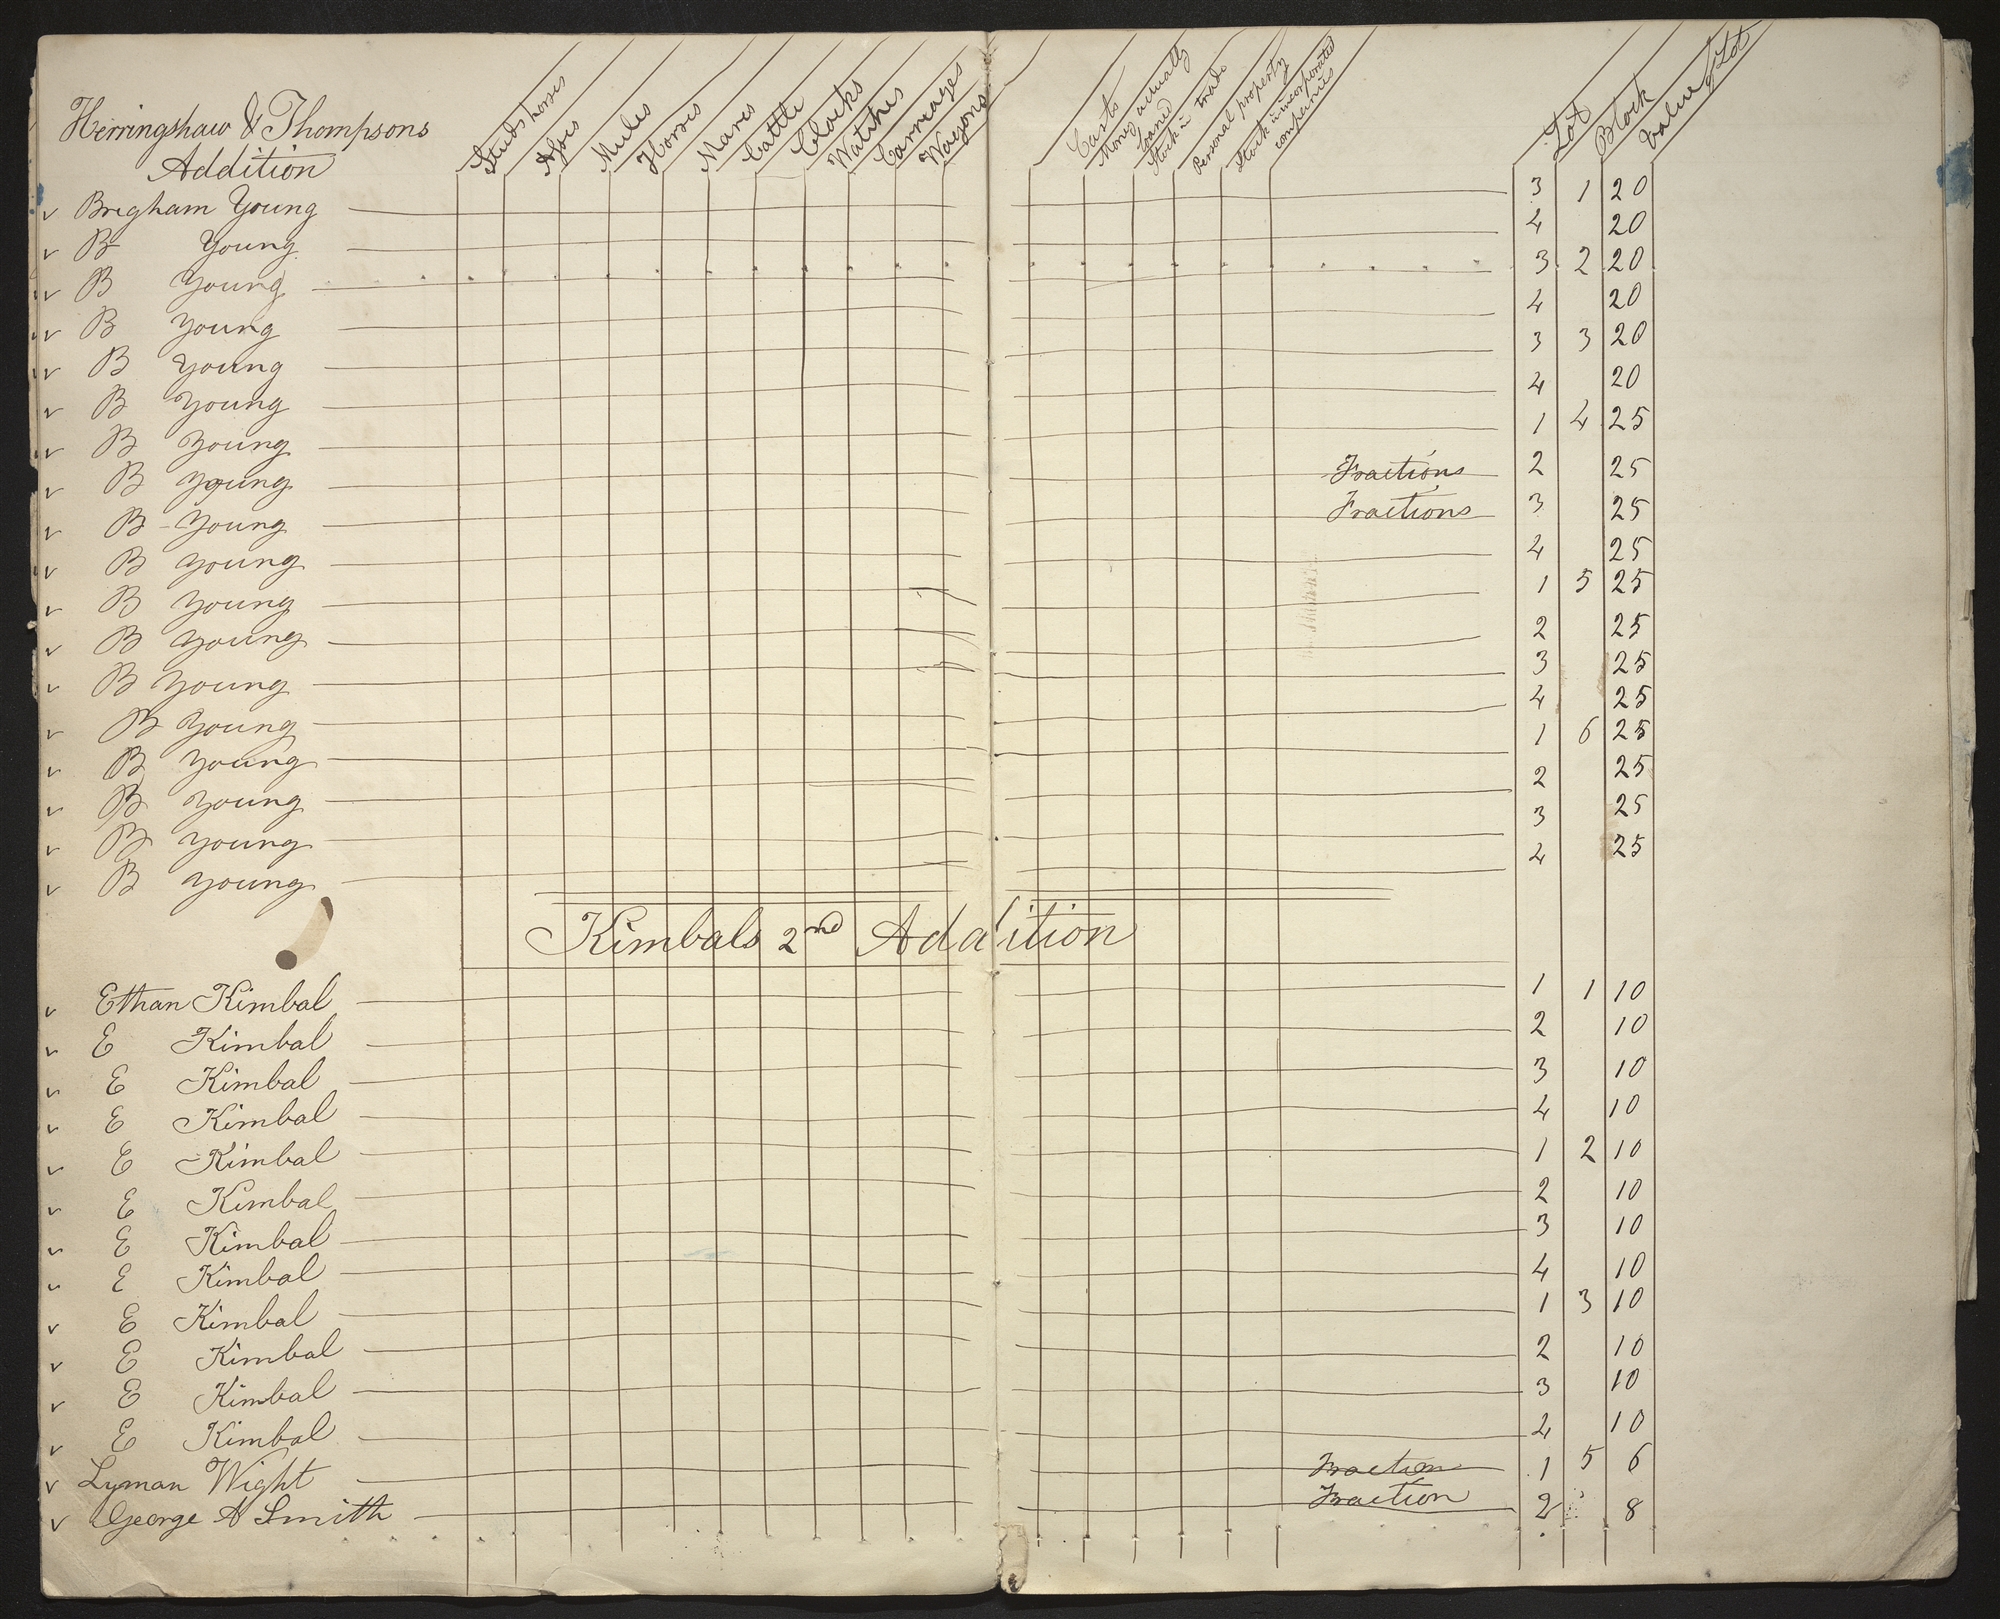 Herringshaw & Thompsons
Addition
Studs horses
Asses
Mules
Horses
Mares
Cattle
Clocks
Watches
Carriages
Waggons
Carts
Mony actually loaned
Stock in trade
Personal property
Stock in incorporated companies
Lot
Block
Value of Lot
v Brigham Young 3 1 20
v B Young 4 20
v B Young 3 2 20
v B Young 4 20
v B Young 3 3 20
v B Young 4 20
v B Young 1 4 25
v B Young Fractions 2 25
v B Young Fractions 3 25
v B Young 4 25
v B Young 1 5 25
v B Young 2 25
v B Young 3 25
v B Young 4 25
v B Young 1 6 25
v B Young 2 25
v B Young 3 25
v B Young 4 25
Kimbals 2nd Addition
v Ethan Kimbal 1 1 10
v E Kimbal 2 10
v E Kimbal 3 10
v E Kimbal 4 10
v E Kimbal 1 2 10
v E Kimbal 2 10
v E Kimbal 3 10
v E Kimbal 4 10
v E Kimbal 1 3 10
v E Kimbal 2 10
v E Kimbal 3 10
v E Kimbal 4 10
v Lyman Wight Fraction 1 5 6
v George A Smith Fraction 2 8